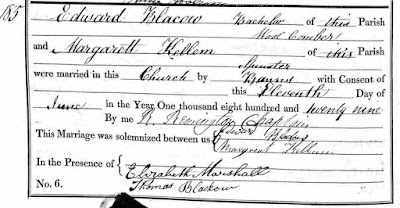 185
Edward Blacow Bachelor of this Parish
Wool Comber
and Margarett Kellem of this Parish
Spinster
were married in this Church by Banns with Consent of
this Eleventh Day of
June in the Year One thousand eight hundred and twenty nine
By me R. Remington Chaplain
This Marriage was solemnized between us { Edward Blacow
Margaret Kellum
In the Presence of { Elizabeth Marshall
Thomas Blackow
No. 6.